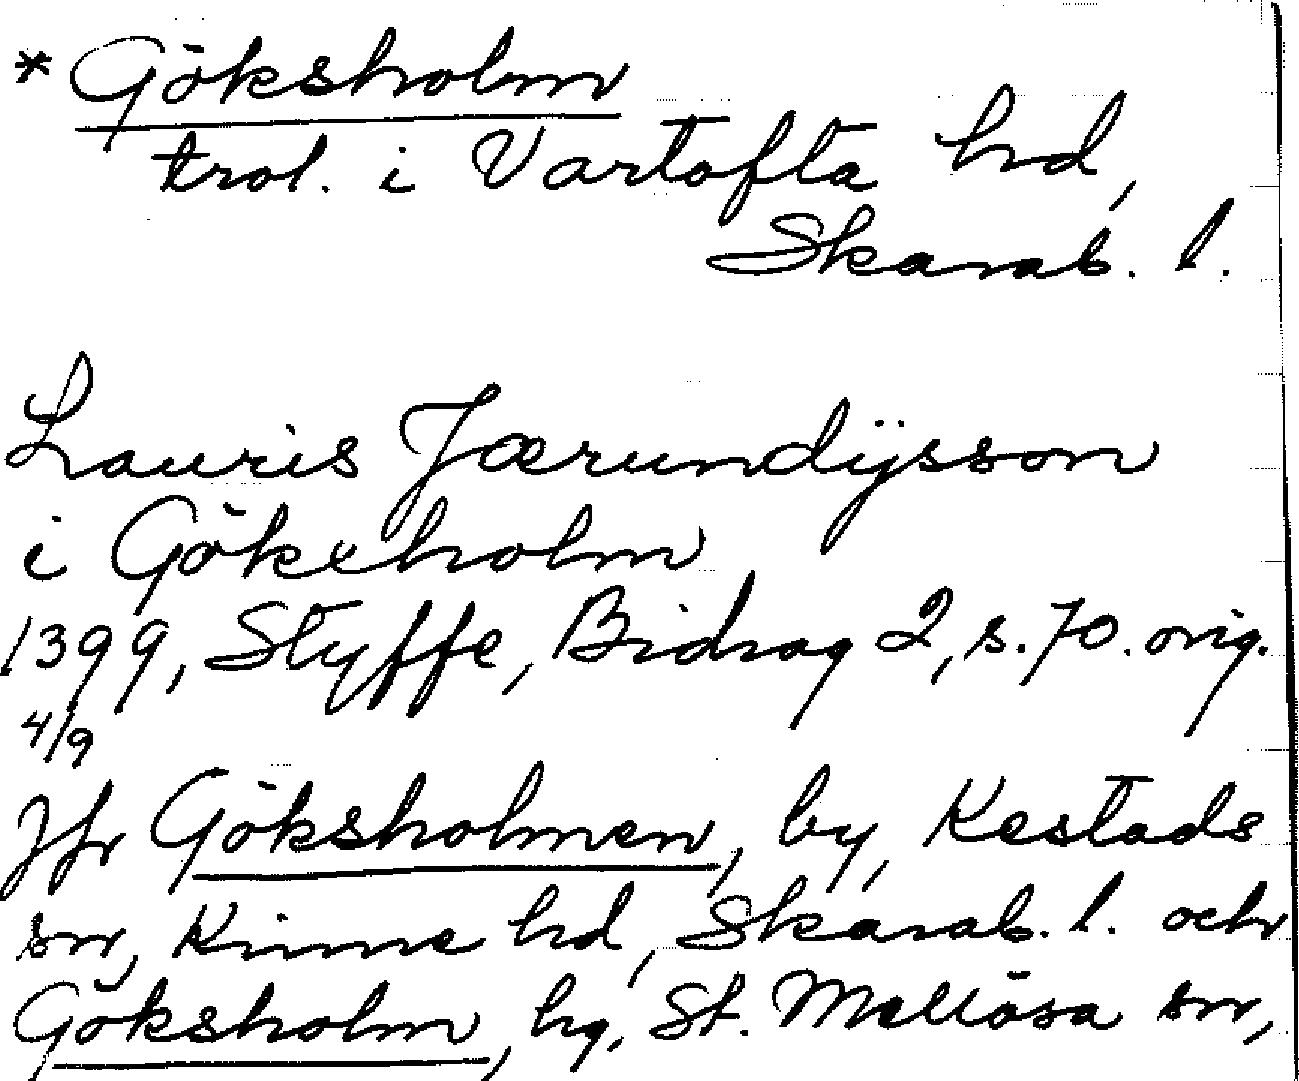 * Göksholm
trol. i Vartofta hd,
Skarab. l.
Lauris Jærundÿsson
i Gökeholm
1399, Styffe, Bidrag 2, s. 70. orig.
4/9
Jfr Göksholmen, by, Kestads
sn, Kinne hd, Skarab. l. och
Göksholm, hg, St. Mellösa sn,